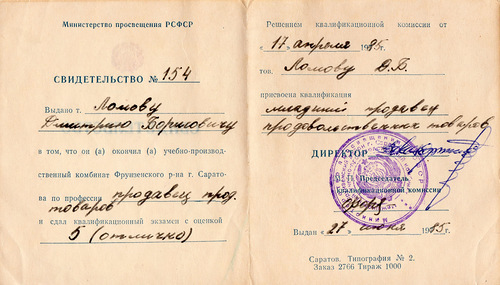 Министерство просвещения РСФСР
СВИДЕТЕЛЬСТВО № 154
Выдано т. Ломову
Дмитрию Борисовичу
в том, что он (а) окончил (а) учебно-производ-
ственный комбинат Фрунзенского р-на г. Сарато-
ва по профессии продавец прод.
товаров
и сдал квалификационный экзамен с оценкой
5 (отлично)
Решением квалификационной комиссии от
« 17 » апреля 1985г.
тов. Ломову Д.Б.
присвоена квалификация
младший продавец
продовольственных товаров
ДИРЕКТОР
Председатель
Квалификационной комиссии
Выдан « 27 » июня 1985г.
Саратов. Типография № 2.
Заказ 2766 Тираж 1000